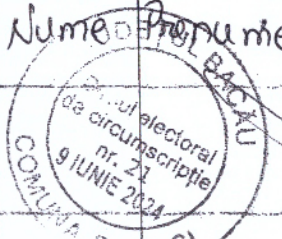 Nume Prenume
BACĂU
electoral
de circumscripție
nr. 21
9 IUNIE 2024
COMUNA